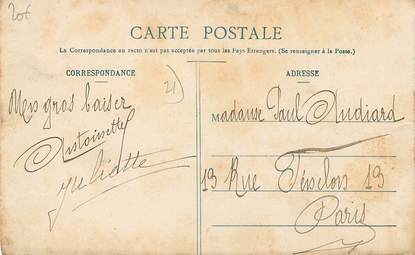 20f
CARTE POSTALE
La Correspondance au recto n'est pas acceptée par tous les Pays Etrangers. (Se renseigner à la Poste.)
CORRESPONDANCE
ADRESSE
21)
Mes gros baiser
Antoinette
Juliette
Madame Paul Audiard
13 Rue 13
Paris